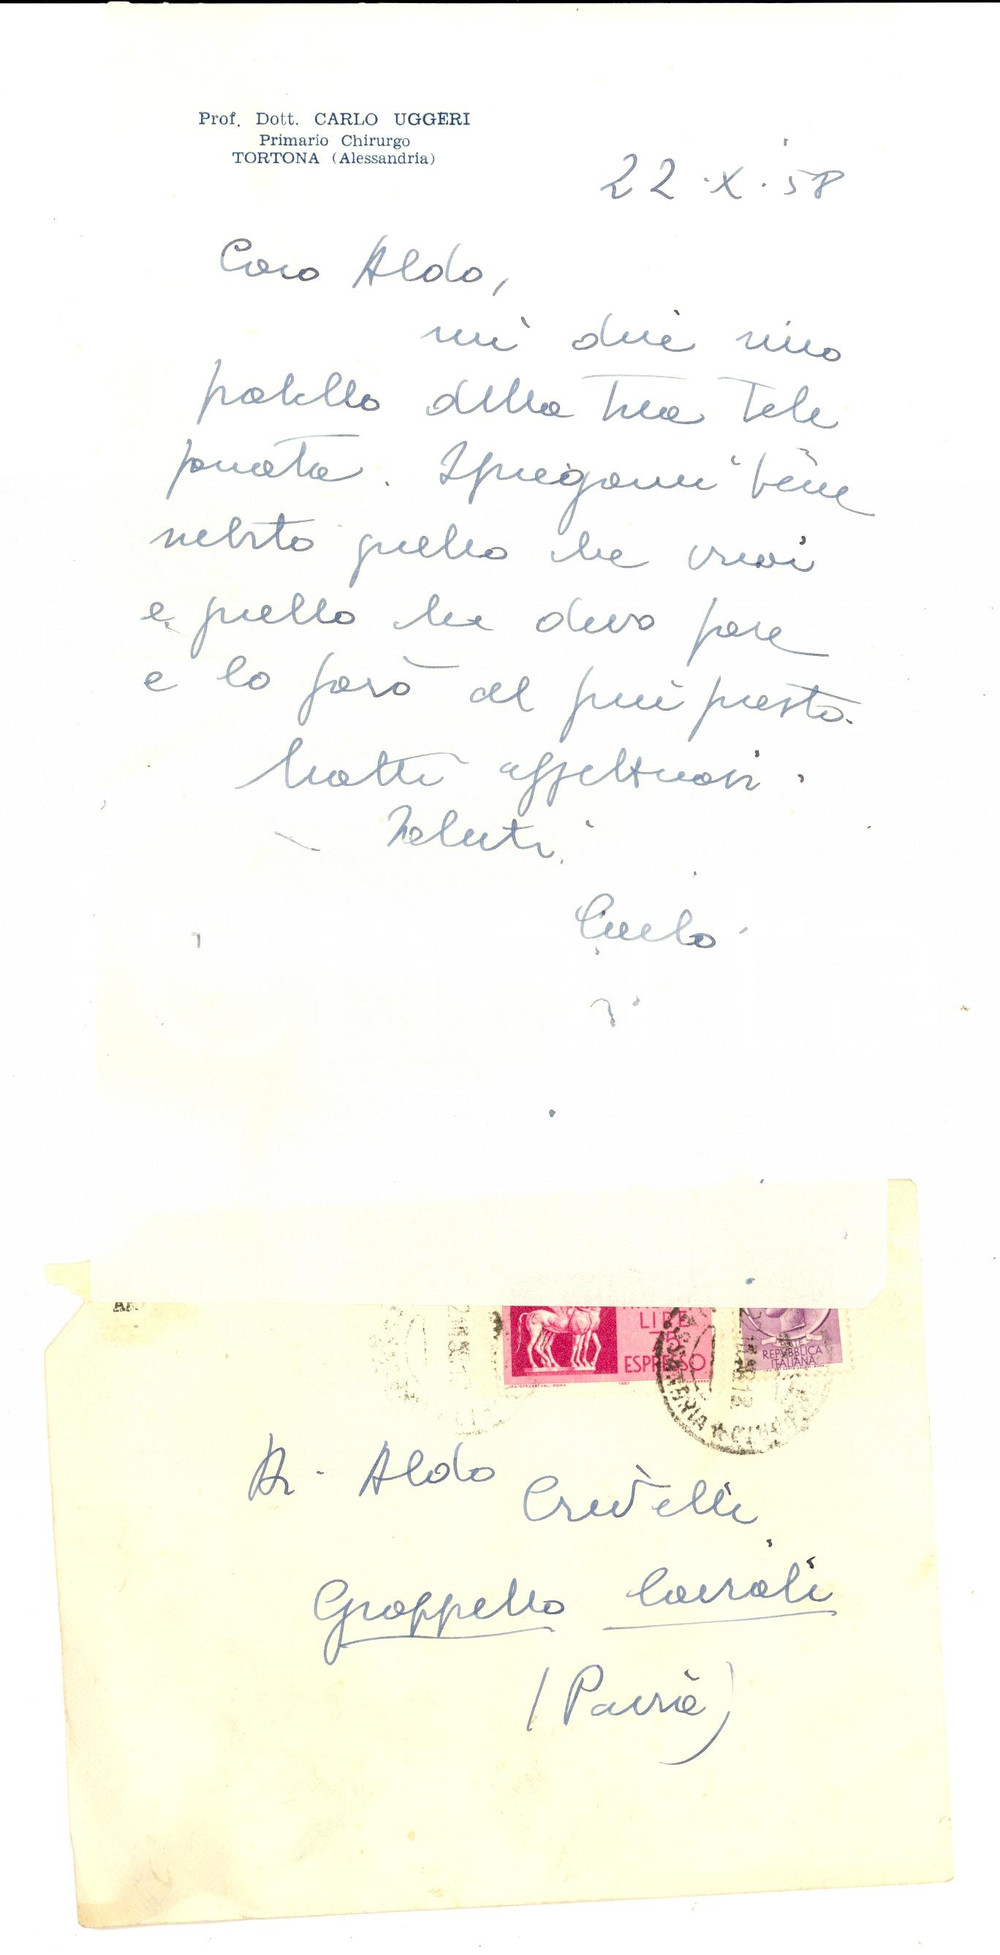 Prof. Dott. CARLO UGGERI
Primario Chirurgo
TORTONA (Alessandria)
22.X.58
Caro Aldo,
mi dice mio
fratello della tua tele
fonata. Spiegami bene
subito quello che vuoi
e quello che devo fare
e lo farò al più presto.
Molti affettuosi
saluti.
Carlo
LIRE
ESPRESSO
REPUBBLICA
ITALIANA
Aldo
Crivelli
Groppello Cairoli
(Pavia)